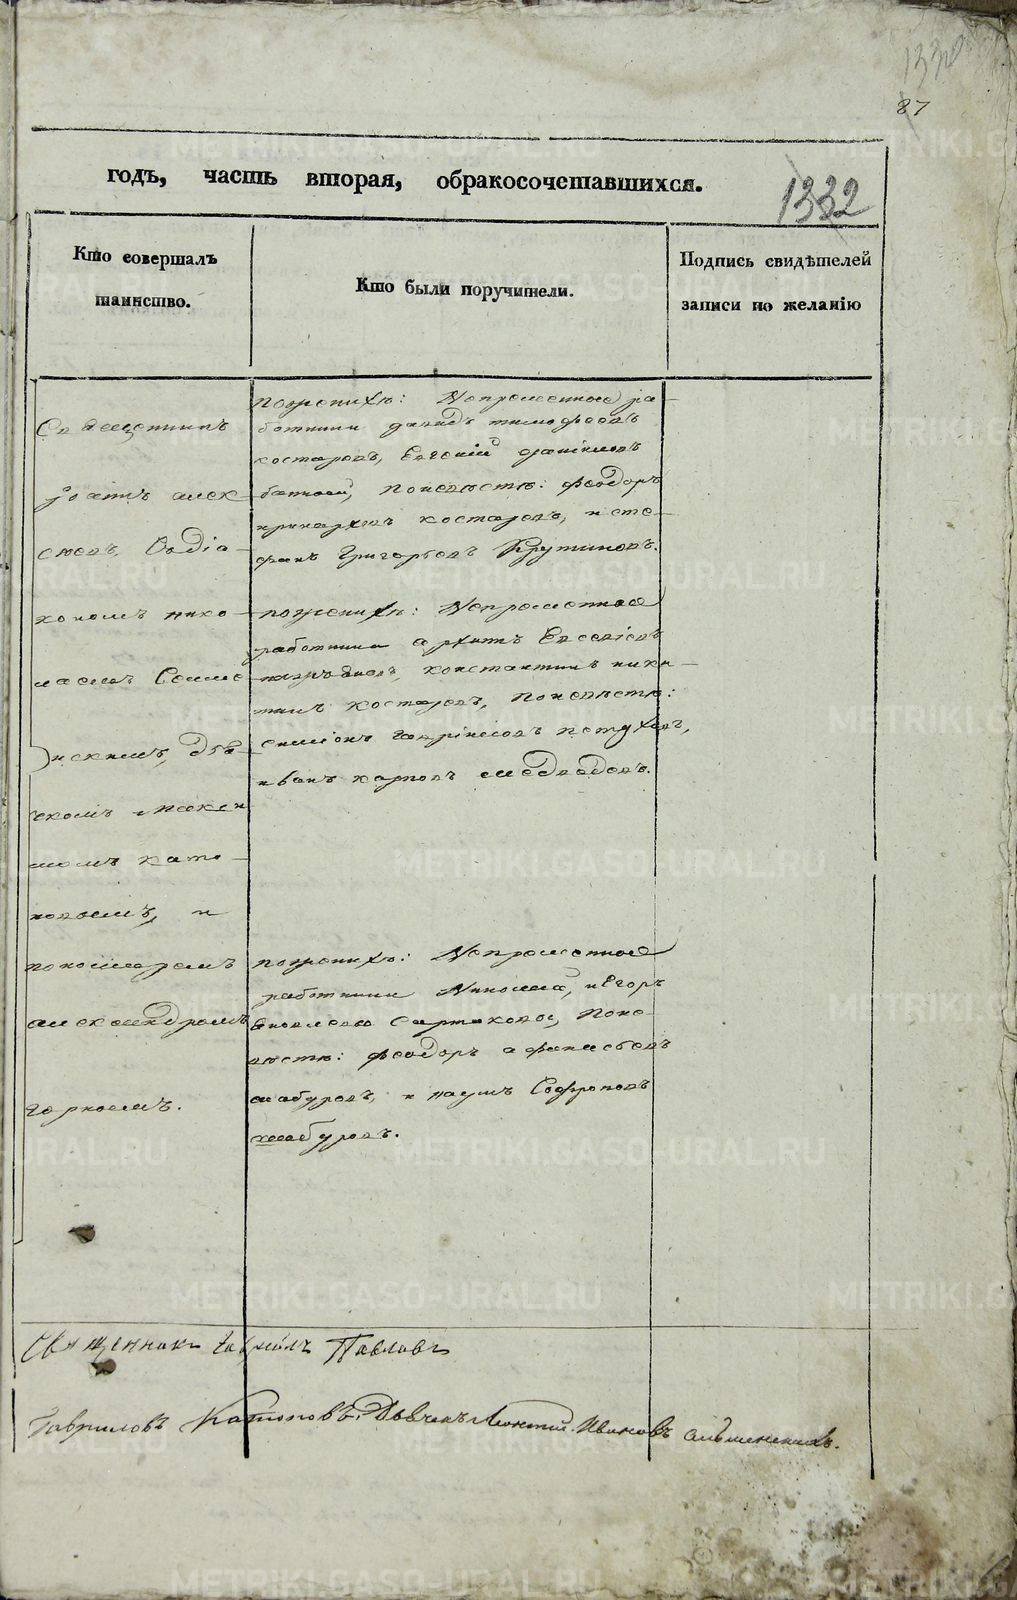 1330
87
годъ, часть вторая, обракосочетавшихся.
1332
Кто совершалъ
таинство.
Кто были поручители.
Подпись свидѣтелей
записи по желанію
Священникъ
Іоаннъ алек
сѣевъ, Содіа-
кономъ нико-
лаемъ
дья-
чкомъ Макси
момъ като-
новымъ, и
пономаремъ
александромъ
горнымъ.
пожених​ѣ: Непременные ра-
ботники давидъ тимофеевъ
костаревъ, Евгеній
поневѣстѣ: феодоръ
костаревъ, и сте-
фанъ Григорьевъ Крутиковъ.
поженихѣ: Непременные
работники архипъ
константинъ ники-
тинъ костаревъ, поневѣстѣ:
симіонъ гавріиловъ петуховъ,
иванъ карповъ медведевъ.
поженихѣ: Непременные
работники Николай, и Егоръ
яковлевы Сартаковы, поне-
вѣстѣ: феодоръ афанасьевъ
шабуровъ, и наумъ Софроновъ
шабуровъ.
Священникъ Павловъ
Гавриловъ Катоновъ. Дьячекъ Леонтій Ивановъ
METRIKI.GASO-URAL.RU